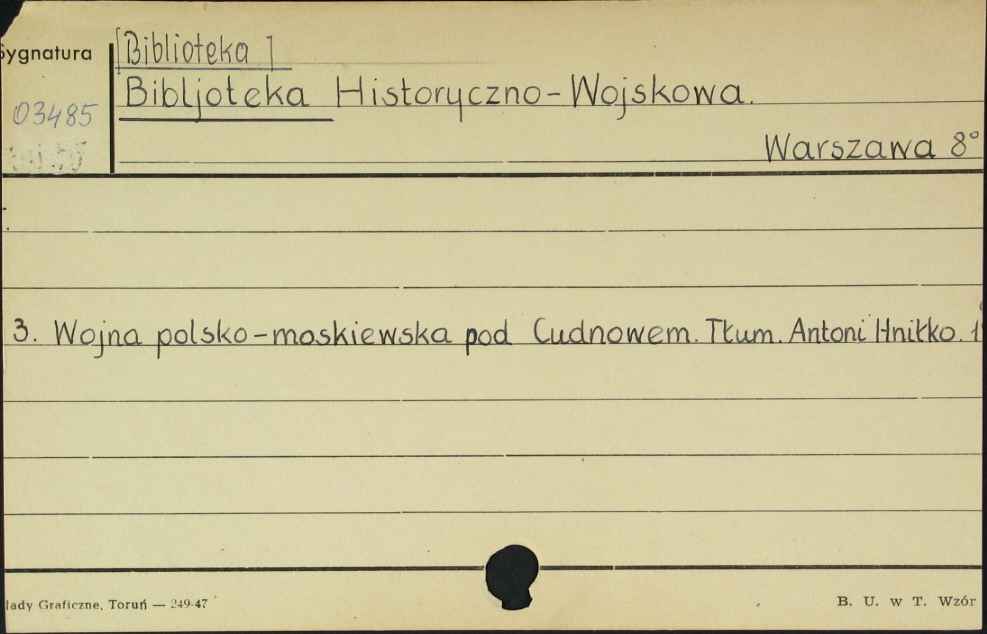 Sygnatura
[Biblioteka]
Bibljoteka Historyczno-Wojskowa.
03485
Warszawa 8°
3. Wojna polsko-moskiewska pod Cudnowem. Tłum. Antoni Hniłko. 1
łady Graficzne, Toruń — 249-47
B. U. w T. Wzór